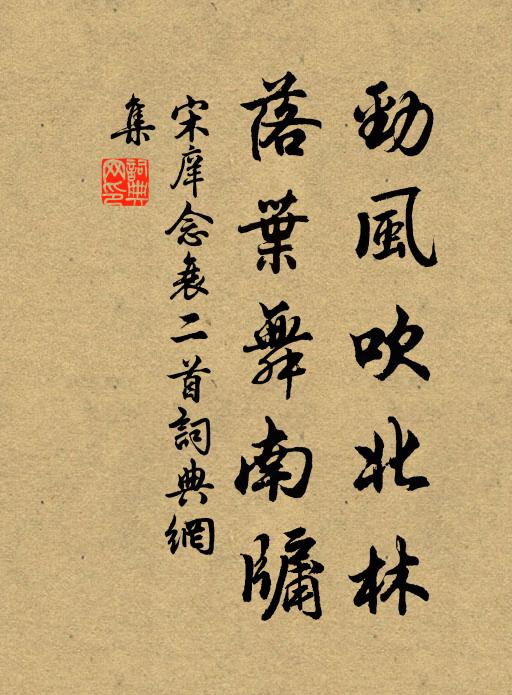 勁風吹北林
落葉舞南牖
宋庠念衰二首詞典網
集
詞典网印